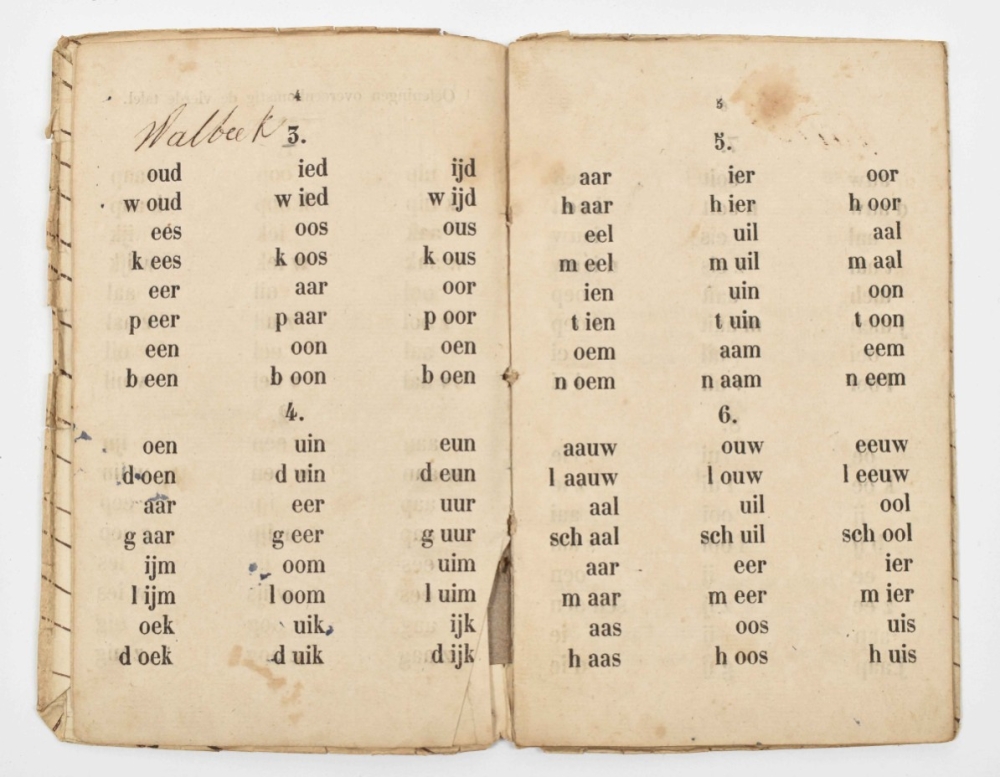 4
Walbeek
3.
oud ied ijd
w oud w ied w ijd
ees oos ous
k ees k oos k ous
eer aar oor
p eer p aar p oor
een oon oen
b een b oon b oen
4.
oen uin eun
d oen d uin d eun
aar eer uur
g aar g eer g uur
ijm oom uim
l ijm l oom l uim
oek uik ijk
d oek d uik d ijk
5
5.
aar ier oor
h aar h ier h oor
eel uil aal
m eel m uil m aal
ien uin oon
t ien t uin t oon
oem aam eem
n oem n aam n eem
6.
aauw ouw eeuw
l aauw l ouw l eeuw
aal uil ool
sch aal sch uil sch ool
aar eer ier
m aar m eer m ier
aas oos uis
h aas h oos h uis